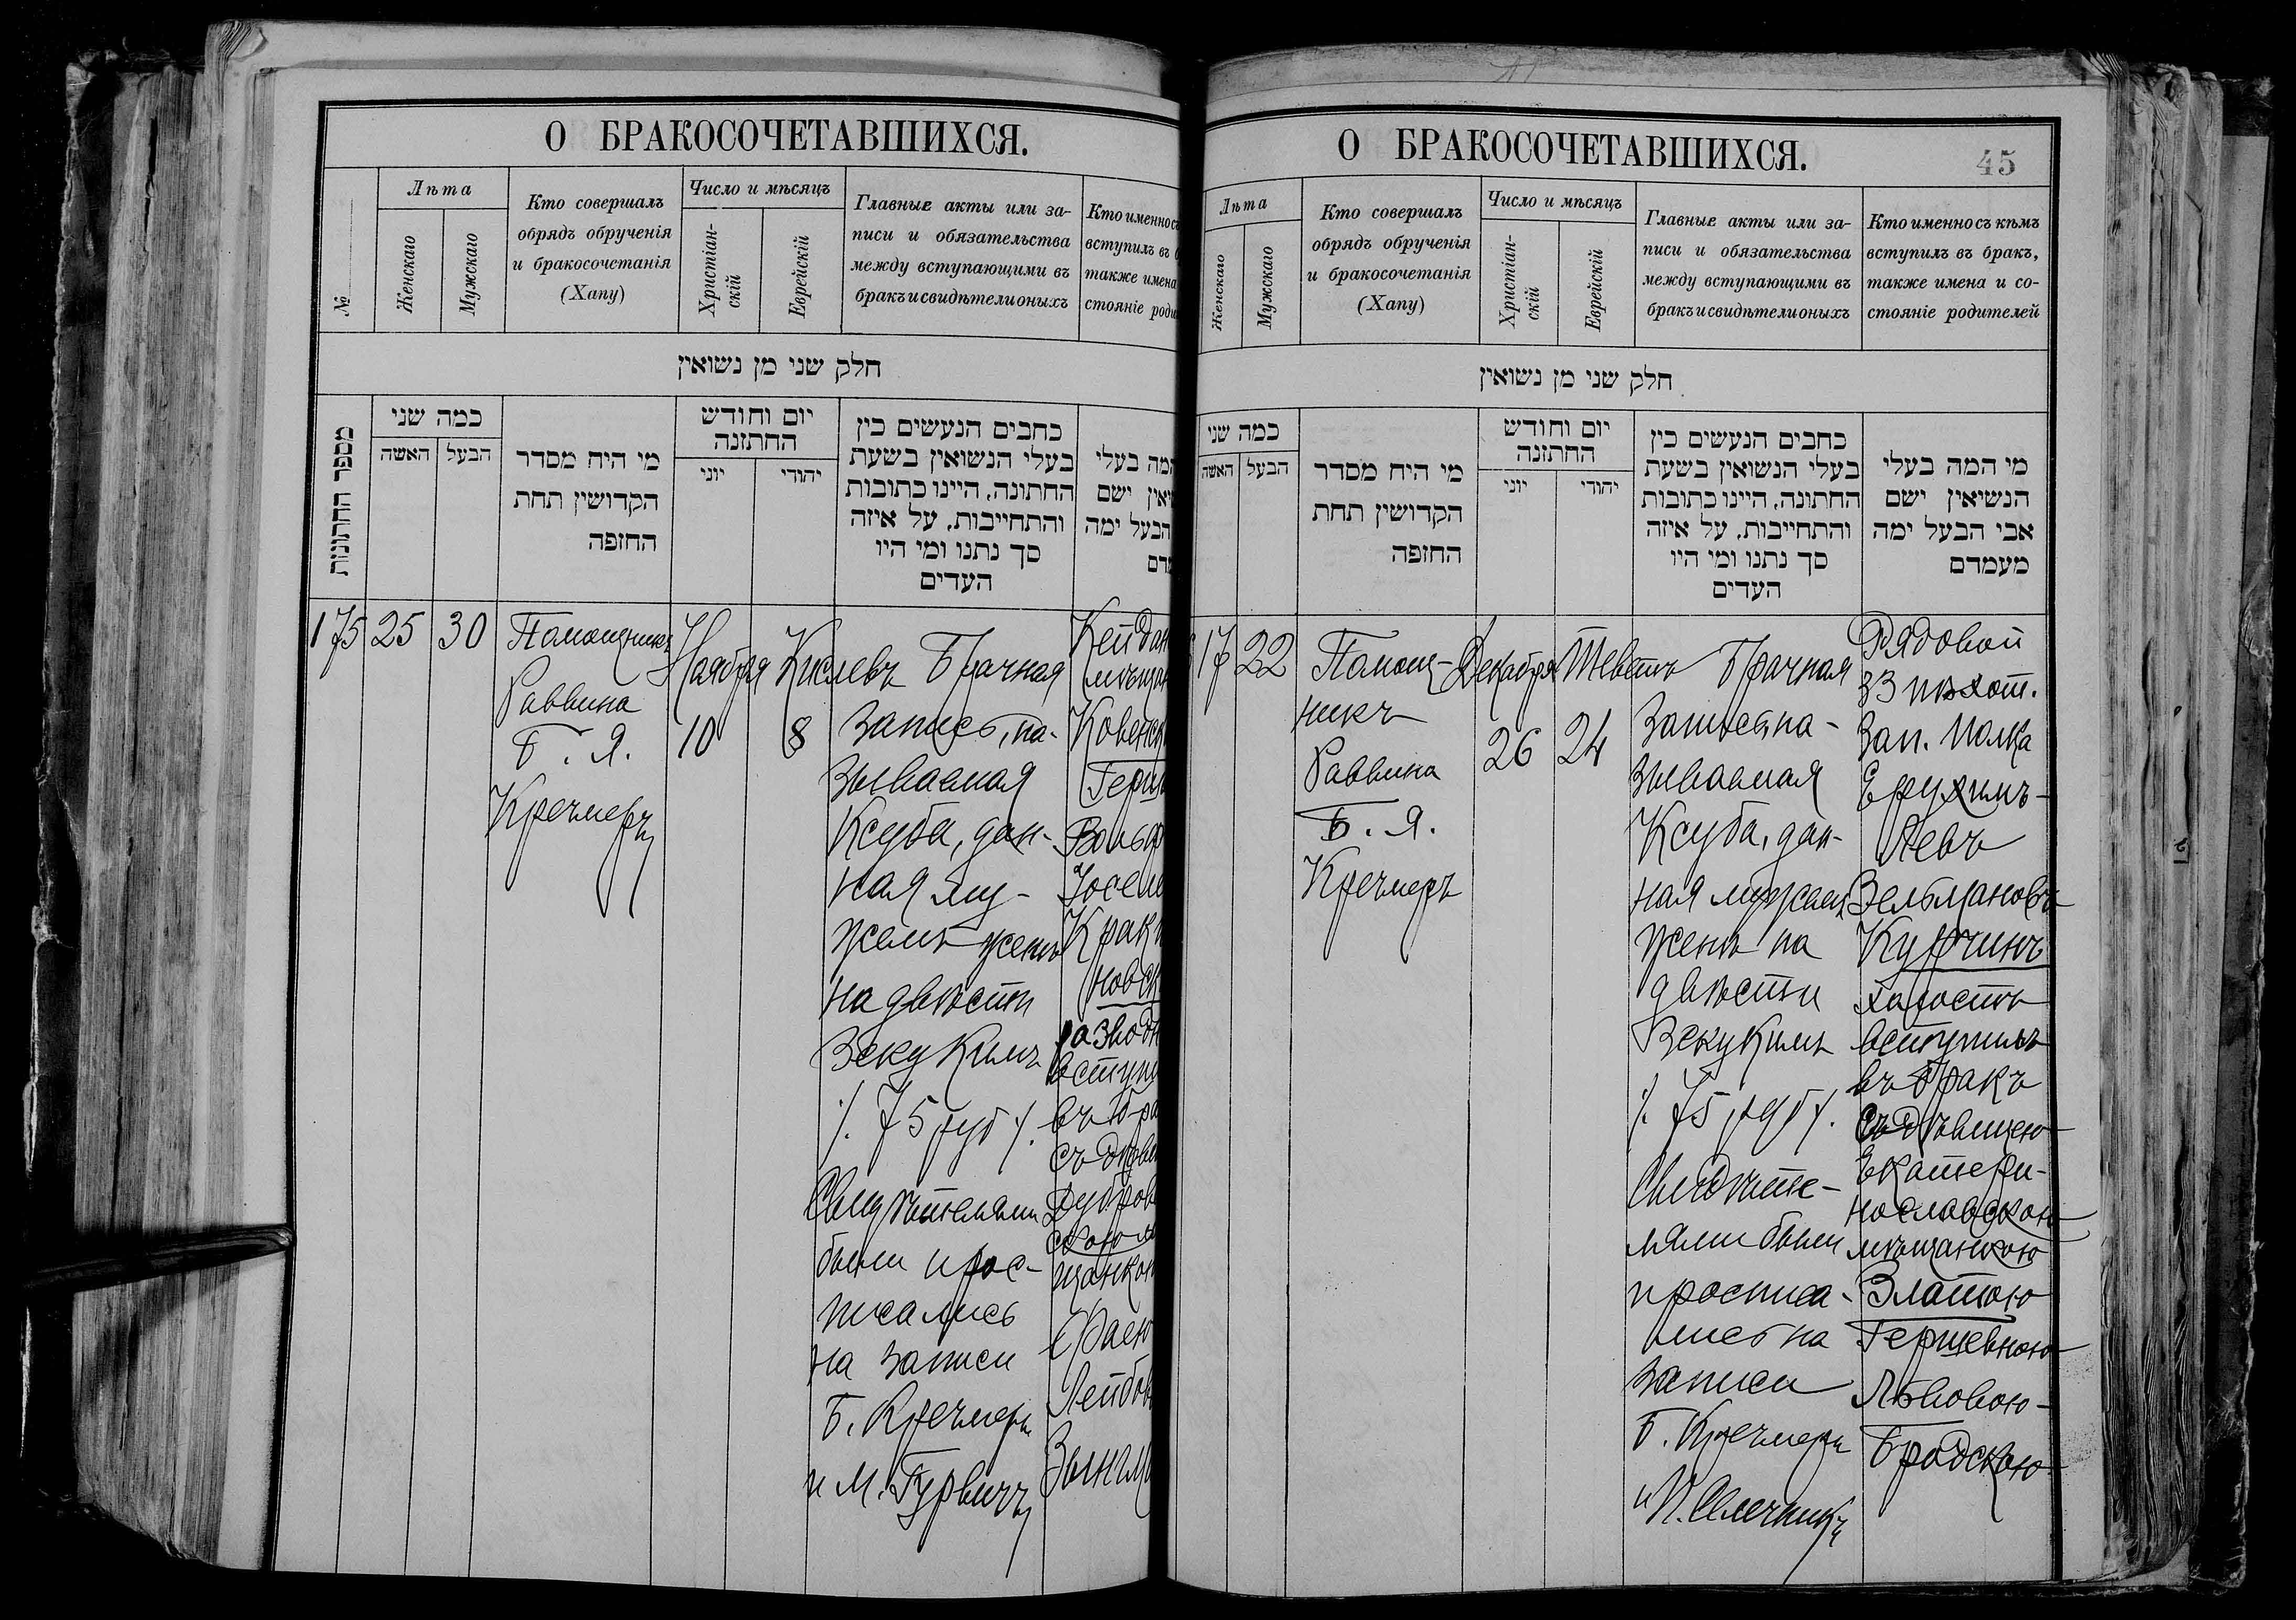 О БРАКОСОЧЕТАВШИХСЯ.
№
Лѣта
Женскаго
Мужскаго
Кто совершалъ
обрядъ обрученія
и бракосочетанія
(Хапу)
Число и мѣсяцъ
Христіан-
скій
Еврейскій
Главные акты или за-
писи и обязательства
между вступающими въ
бракъ и свидѣтели оныхъ
Кто именно съ
вступилъ въ б
также имена
стояніе роди
חלק שני מן נשואין
מספר החתונות
כמה שני
האשה
הבעל
מי היה מסדר
הקדושין תחת
החופה
יום וחודש
החתונה
יוני
יהודי
כתבים הנעשים בין
בעלי הנשואין בשעת
החתונה, היינו כתובות
והתחייבות, על איזה
סך נתנו ומי היו
העדים
המה בעלי
ואין ישם
הבעל ימה
מדם
175
25
30
Помощникъ
Раввина
Б. Я.
Кречмеръ
Ноября
10
Кислевъ
8
Брачная
запись, на-
зываемая
Ксуба, дан-
ная му-
жемъ женѣ
на двѣсти
зекукимъ
/. 75 руб /.
Свидѣтелями
были и рос-
писались
на записи
Б. Кречмеръ
и М. Гурвичъ
Кейдан
мѣщан
Ковенск
Герш
Вольф
Іоселе
Крак
новск
разводн
вступи
въ бра
съ дѣви
Дубров
скою м
щанкою
Фаею
Лейбов
О БРАКОСОЧЕТАВШИХСЯ.
45
Лѣта
Женскаго
Мужскаго
Кто совершалъ
обрядъ обрученія
и бракосочетанія
(Хапу)
Число и мѣсяцъ
Христіан-
скій
Еврейскій
Главные акты или за-
писи и обязательства
между вступающими въ
бракъ и свидѣтели оныхъ
Кто именно съ кѣмъ
вступилъ въ бракъ,
также имена и со-
стояніе родителей
חלק שני מן נשואין
כמה שני
האשה
הבעל
מי היה מסדר
הקדושין תחת
החופה
יום וחודש
החתונה
יוני
יהודי
כתבים הנעשים בין
בעלי הנשואין בשעת
החתונה, היינו כתובות
והתחייבות, על איזה
סך נתנו ומי היו
העדים
מי המה בעלי
הנשיאין ישם
אבי הבעל ימה
מעמדם
17
22
Помощ-
никъ
Раввина
Б. Я.
Кречмеръ
Декабря
26
Теветъ
24
Брачная
запись, на-
зываемая
Ксуба, дан-
ная мужемъ
женѣ на
двѣсти
зекукимъ
/. 75 руб /.
Свидѣте-
лями были
и росписа-
лись на
записи
Б. Кречмеръ
Рядовой
33 пѣхот.
Зап. полка
Ерухимъ-
Левъ
Зельмановъ
Курчинъ
холостъ
вступилъ
въ бракъ
съ дѣвицею
Екатери-
нославскою
мѣщанкою
Златою
Гершевною-
Львовою-
Бродскою